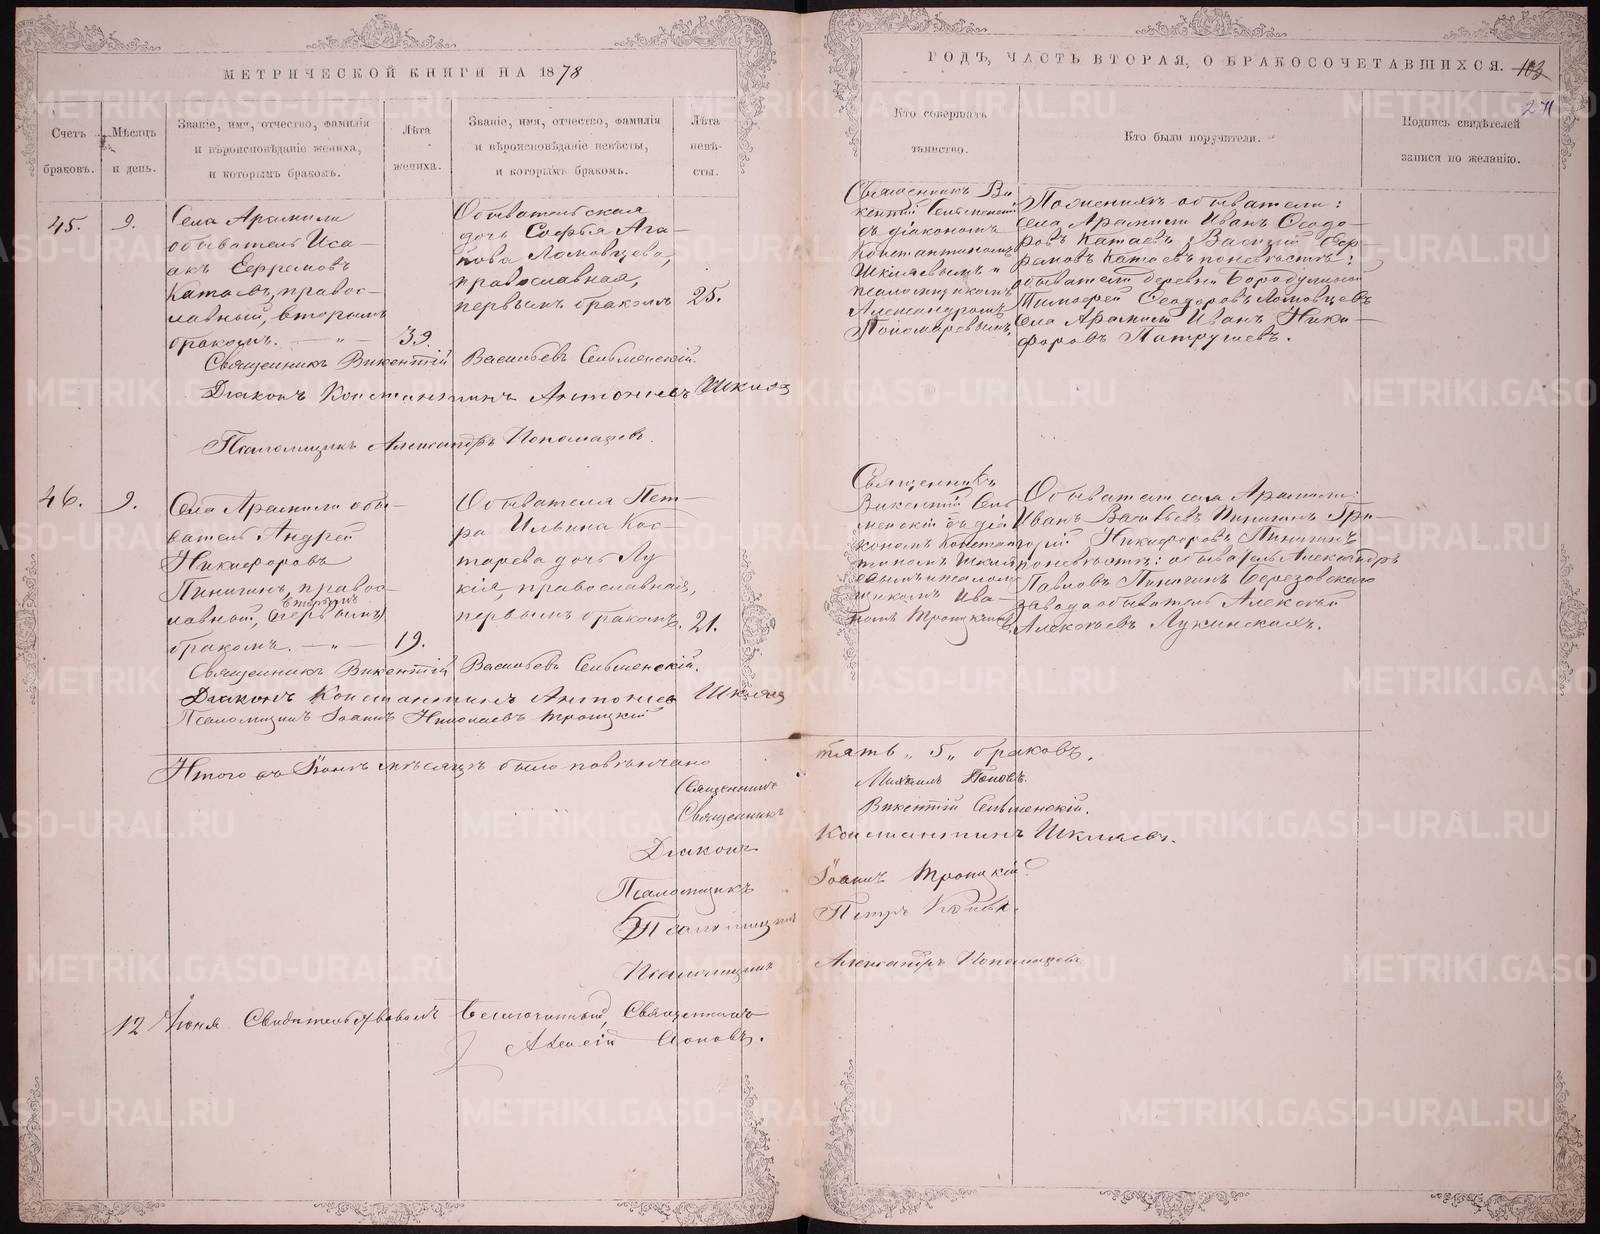 МЕТРИЧЕСКОЙ КНИГИ НА 1878
ГОДЪ, ЧАСТЬ ВТОРАЯ, О БРАКОСОЧЕТАВШИХСЯ. 103
271
Счетъ браковъ.
Мѣсяцъ и день.
Званіе, имя, отчество, фамилія
и вѣроисповѣданіе жениха,
и которымъ бракомъ.
Лѣта жениха.
Званіе, имя, отчество, фамилія
и вѣроисповѣданіе невѣсты,
и которымъ бракомъ.
Лѣта невѣ-
сты.
Кто совершалъ
таинство.
Кто были поручители.
Подпись свидѣтелей
записи по желанію.
45.
9.
Села Арамили
обыватель Иса-
акъ Ефремовъ
Катаевъ, правос-
лавный, вторымъ
бракомъ. — „ —
39.
Обывательская
дочь Софья Ага-
пова Ломовцева,
православная,
первымъ бракомъ
25.
Священникъ Ви-
кентій Сельменскій
съ діакономъ
Константиномъ
Шкляевымъ и
псаломщикомъ
Александромъ
Пономаревымъ.
По женихѣ обыватели:
села Арамили Иванъ Ѳеодо-
ровъ Катаевъ, Василій Ефр-
ремовъ Катаевъ по невѣстѣ:
обыватели деревни Бородулиной
Тимоѳей Ѳеодоровъ Ломовцевъ
села Арамили Иванъ Ники-
форовъ Патрушевъ.
Священникъ Викентій Васильевъ Сельменскій.
Діаконъ Константинъ Антоніевъ Шкляев
Псаломщикъ Александръ Пономаревъ.
46.
9.
Села Арамили обы-
ватель Андрей
Никифоровъ
Пинигинъ, правос-
вторымъ
лавный, (первымъ)
бракомъ. — „ —
19.
Обывателя Пет-
ра Ильина Кос-
тарева дочь Лу
кія, православная,
первымъ бракомъ.
21.
Священникъ
Викентій Сель
менскій съ діа
кономъ Констан
тиномъ Шкля
евымъ и псалом
щикомъ Ива-
номъ Троицкимъ.
Обыватели села Арамили:
Иванъ Васильевъ Пинигинъ, Гри-
горій Никифоровъ Пинигинъ
по невѣстѣ: обыватель Александръ
Павловъ Пинигинъ Березовского
завода обыватель Алексѣй
Алексѣевъ Лукинскихъ.
Священникъ Викентій Васильевъ Сельменскій.
Діаконъ Константинъ Антоніевъ Шкляев
Псаломщикъ Іоаннъ Николаевъ Троицкій
Итого въ Іюнѣ мѣсяцѣ было повѣнчано пять „5„ браковъ.
Священникъ Михаилъ Поповъ.
Священникъ Викентій Сельменскій.
Діаконъ Константинъ Шкляевъ.
Псаломщикъ Іоаннъ Троицкій
Псаломщикъ Петръ
Псаломщикъ Александръ Пономаревъ
12 Іюня Свидѣтельствовалъ Благочинный, Священникъ
Алексій Поповъ.
METRIKI.GASO-URAL.RU